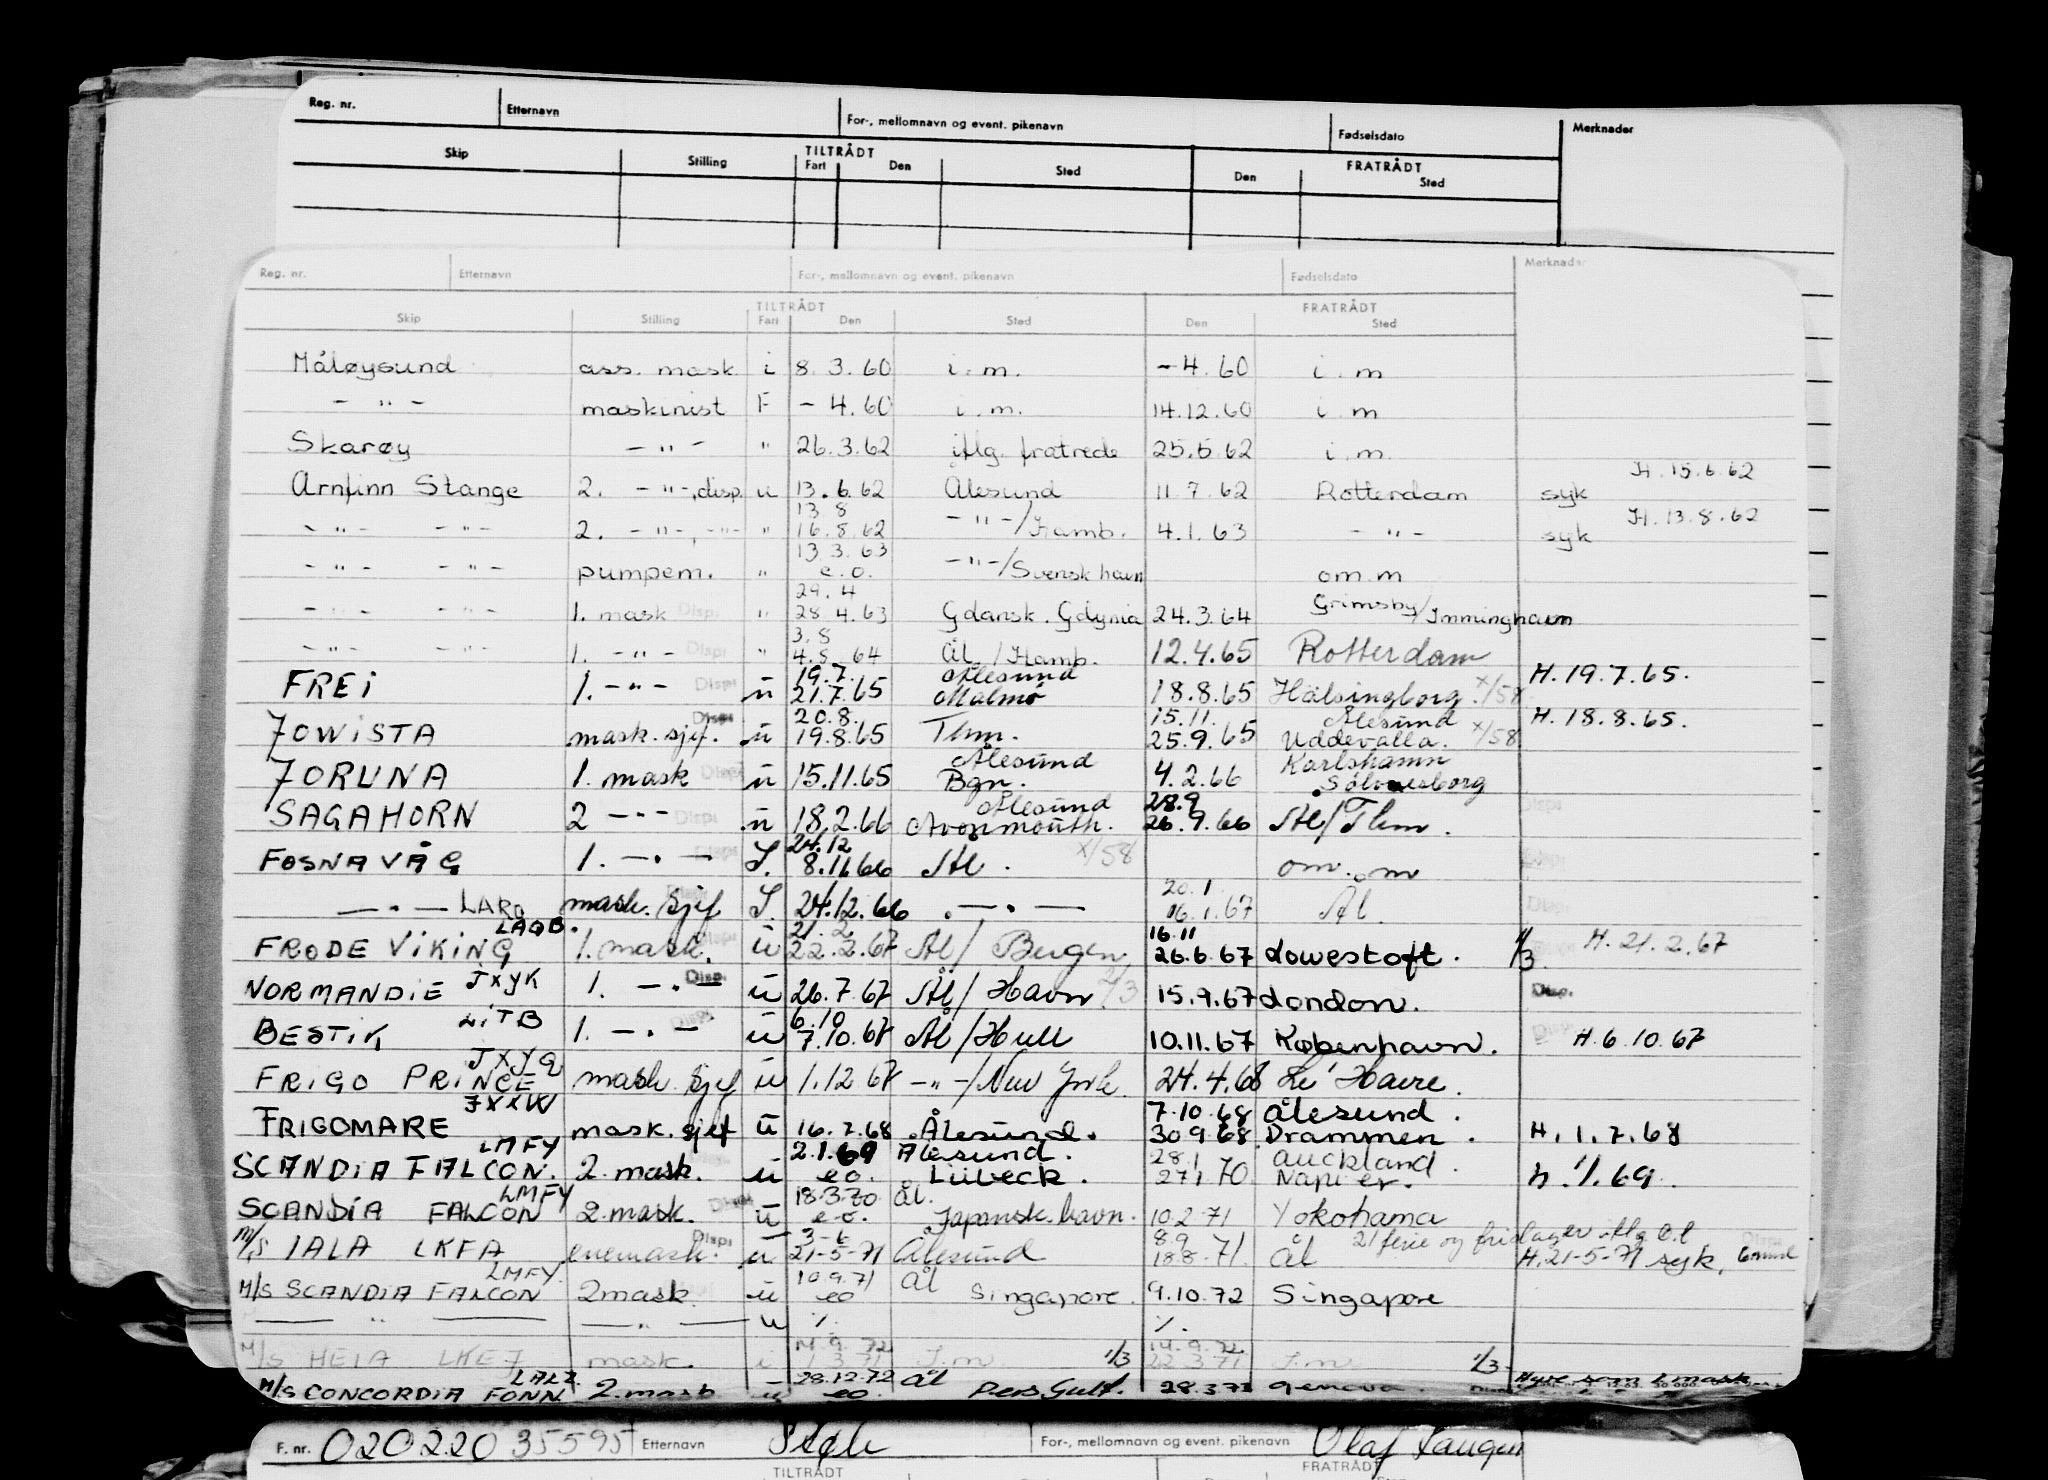 Reg. nr. Etternavn For-, mellomnavn og event. pikenavn Fødselsdato Merknader
Skip Stilling TILTRÅDT Fart Den Sted FRATRÅDT Den Sted
Reg. nr. Etternavn For-, mellomnavn og event. pikenavn Fødselsdato Merknader
Skip Stilling TILTRÅDT Fart Den Sted FRATRÅDT Den Sted
Måløysund ass. mask. i 8.3.60 i.m. -4.60 i.m
- " - maskinist F - 4.60 i.m. 14.12.60 i.m
Skarøy - " - " 26.3.62 iflg. fratrede 25.5.62 i.m.
H. 15.6.62
Arnfinn Stange 2. - " -, disp. u 13.6.62 Ålesund 11.7.62 Rotterdam syk
13 8 H. 13.8.62
- " - - " - 2. - " -, - " - " 16.8.62 - " -/Hamb. 4.1.63 - " - syk
13.3.63
- " - - " - pumpem. " e.o. - " -/Svensk havn om.m
29.4
- " - - " - 1. mask Disp. " 28 4.63 Gdansk. Gdynia 24.3.64 Grimsby/Immingham
3.8
- " - - " - 1. - " - Disp. " 4.8 64 Ål./Hamb. 12.4.65 Rotterdam
19.7. Ålesund H. 19.7.65.
FREI 1. - " - Disp. u 21.7.65 Malmö 18.8.65 Hälsingborg. x/58
20.8. 15.11. Ålesund H. 18.8.65.
JOWISTA mask. sjef. u 19.8.65 Thm. 25.9.65 Uddevalla. x/58
Ålesund Karlshamn
JORUNA 1. mask Disp u 15.11.65 Bgn. 4.2.66 Sölvesborg
Ålesund 28.9
SAGAHORN 2 - " - Disp. u 18.2.66 Avonmouth. 26.9.66 Ål/Thm.
24.12 x/58
FOSNAVÅG 1. - " - S. 8.11.66 Ål. om. m
20.1
- " - LARO mask. sjef S. 24.12.66 - " - 16.1.67 Ål.
LAQB. 21.2 16.11
FRODE VIKING 1. mask. u 22.2.67 Ål/Bergen 26.6.67 Lowestoft. 1/3 H. 21.2.67
NORMANDIE JXYK 1. - " - Disp. u 26.7.67 Ål/Havn 2/3 15.9.67 London. Disp.
LITB 6.10
BESTIK 1. - " - Disp. u 7.10.67 Ål/Hull 10.11.67 København. H. 6.10.67
JXYQ
FRIGO PRINCE mask. sjef u 1.12.67 - " -/New York 24.4.68 Le Havre.
JXXW 7.10.68 Ålesund.
FRIGOMARE mask. sjef u 16.7.68 Ålesund. 30.9.68 Drammen. H. 1.7.68
LMFY 2.1.69 Ålesund. 28.1 Auckland.
SCANDIA FALCON. 2. mask. u eo. Lübeck. 27.1 70 Napier. H. 1/1.69.
LMFY 18.3.70 Ål.
SCANDIA FALCON 2. mask. u e.o. Japansk havn. 10.2.71 Yokohama
3-6 8.9 21 ferie og fridager iflg
M/S IALA LKFA enemask. Disp. u 21-5-71 Ålesund 18.8.71. Ål H. 21-5-71 syk.
LMFY. 10.9.71 Ål
M/S SCANDIA FALCON 2 mask. u eo Singapore. 9.10.72 Singapore
- " - - " - u %. %.
14.9.72 14.9.72.
M/S HEIA LKEJ mask. i 1.3.71 I.m 1/3 22.3.71 I.m. 1/3
LALZ. 28.12.72 Ål Hyre som 1 mask
M/S CONCORDIA FONN 2. mask u eo. Pers. Gulf. 28.3.73 Genova.
F. nr. 020220 35595 Etternavn For-, mellomnavn og event. pikenavn Olaf
TILTRÅDT FRATRÅDT